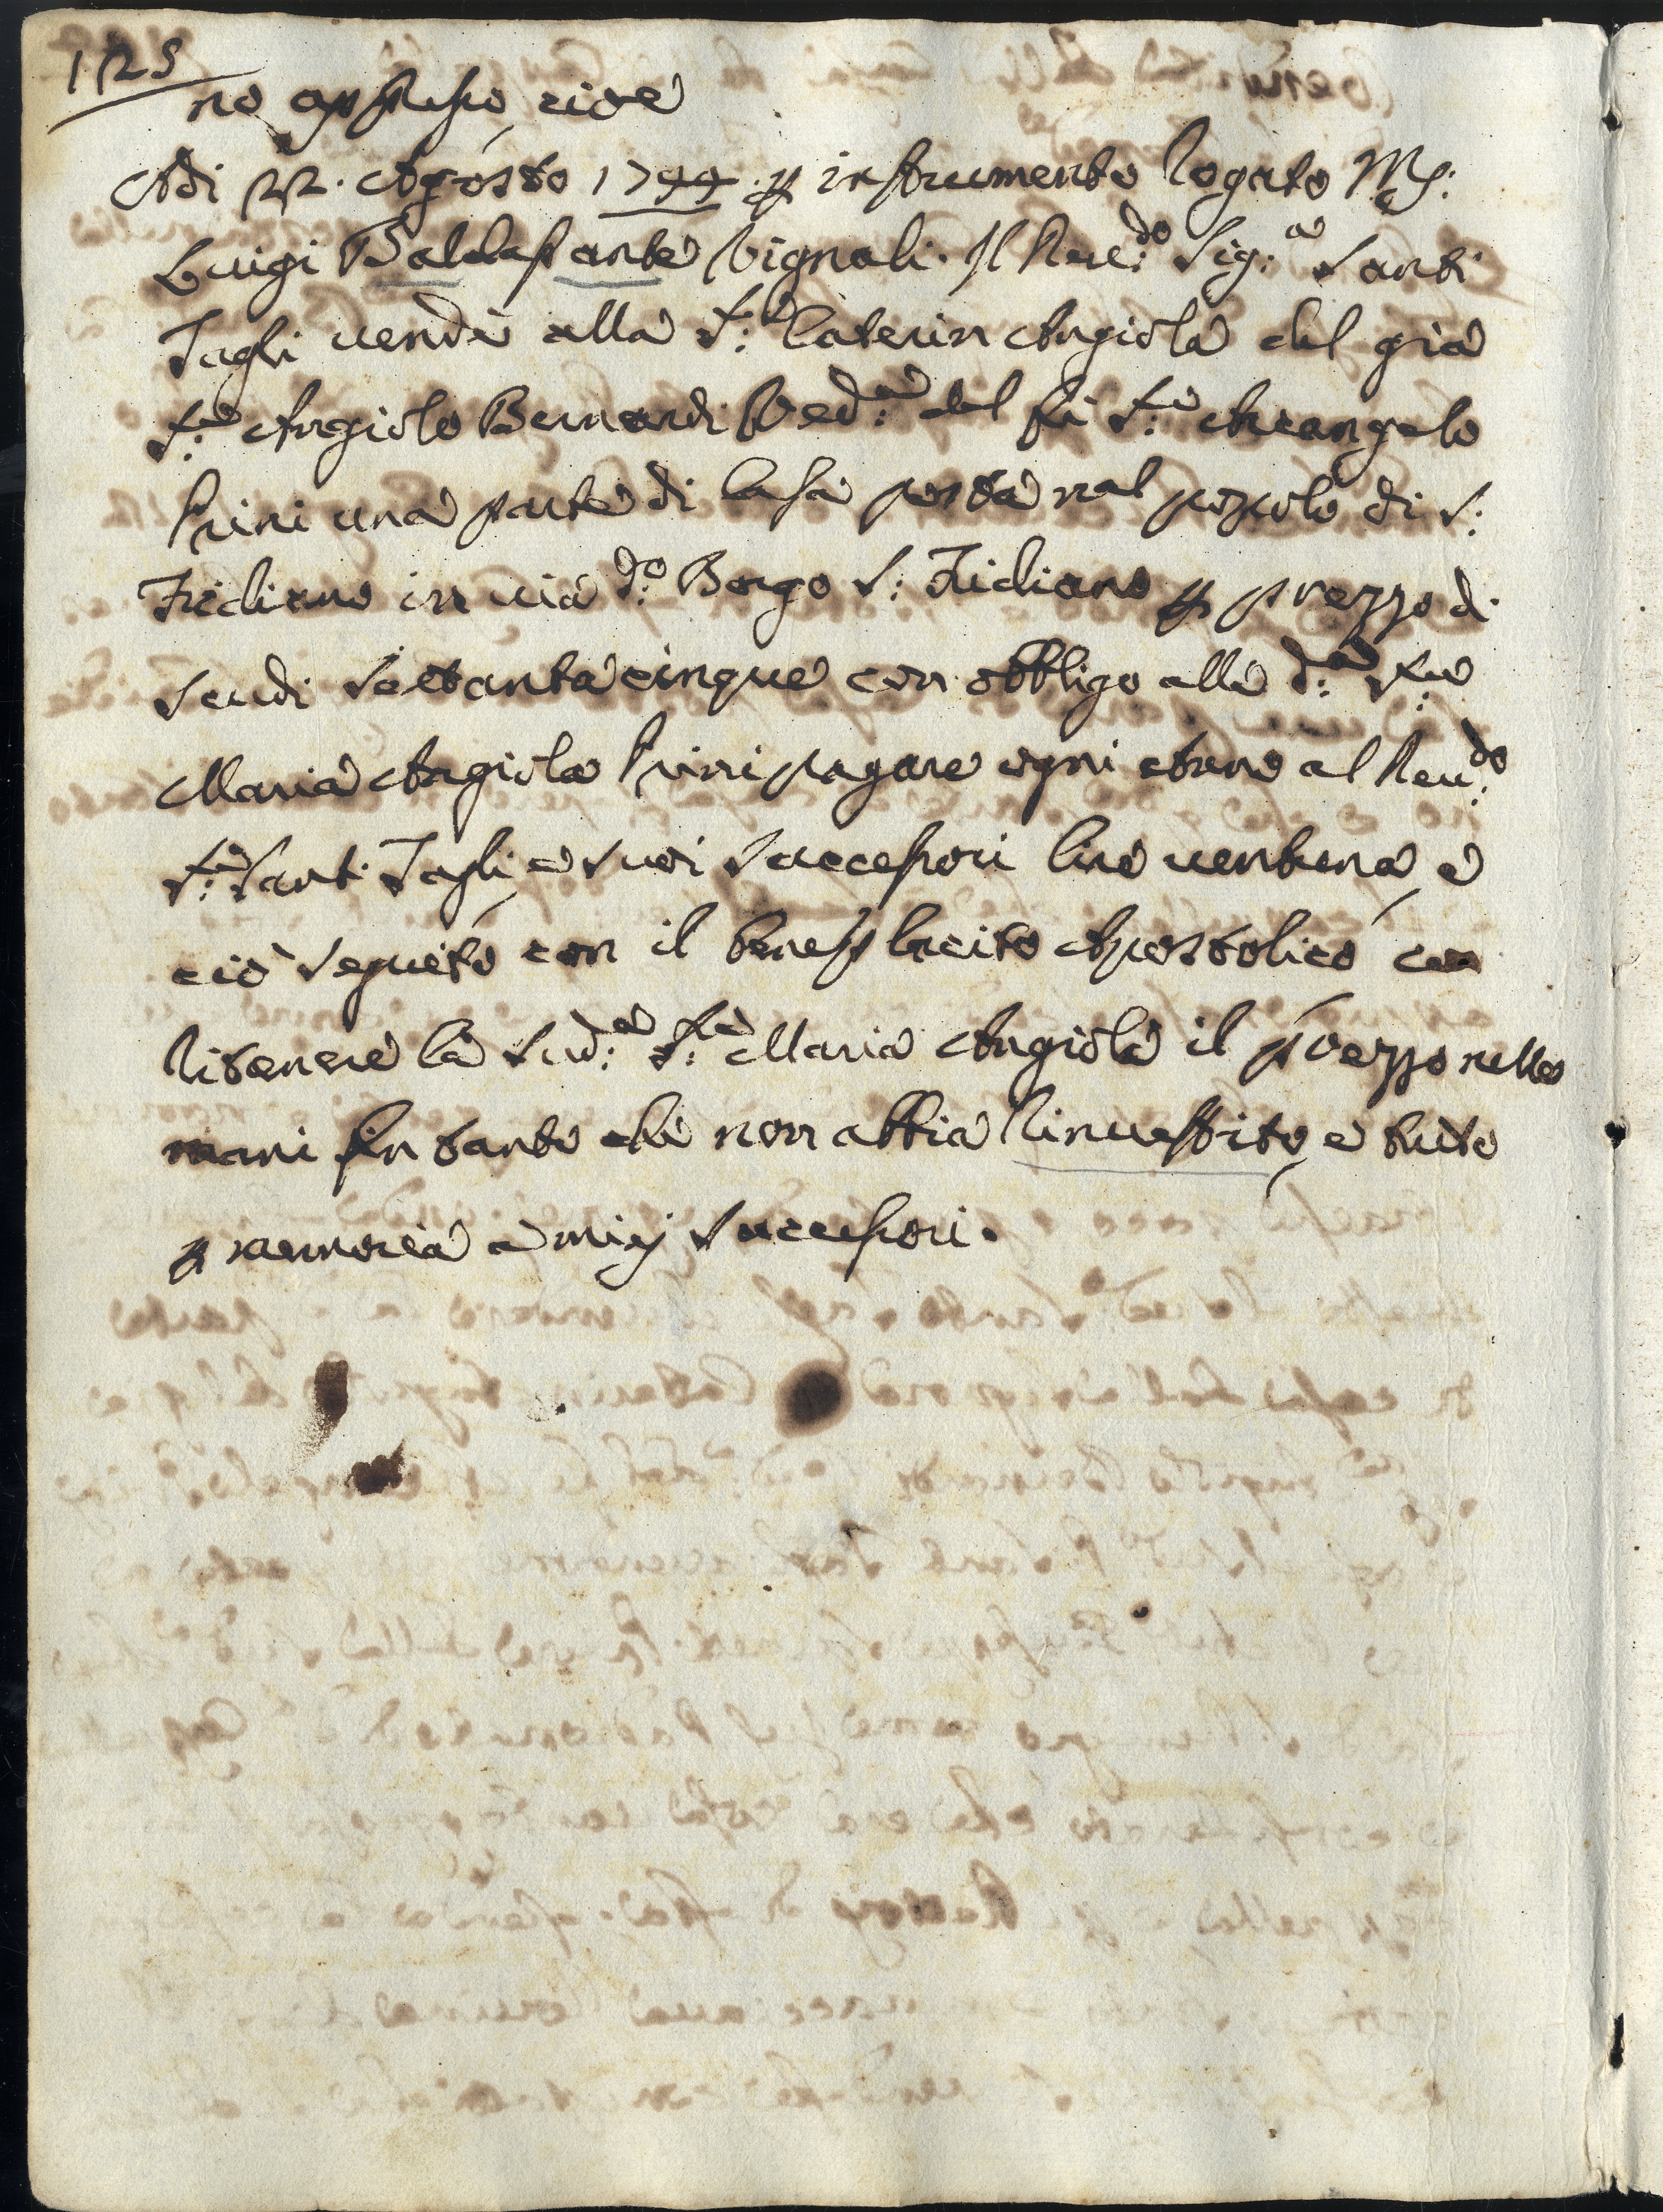 125
no appresso, cioè
Adi 22. Agosto 1744. p instrumento Rogato Ms:
Luigi Baldassante Vignali. Il Reve:do Sig:e Santi
Tagli vendè alla S:a Caterin Angiola del già
S:e Angiolo Bernardi Ved:a del fù S:e Arcangelo
Prini una parte di Casa posta nel popolo di S:
Fridiano in via d:o Borgo S: Fridiano p prezzo di
Scudi Settantacinque con obbligo alla d:a S:ra
Maria Angiola Prini pagare ogni Anno al Reu:do
S:e Santi Tagli, e suoi Successori lire ventuna, e
ciò seguito con il beneplacito Apostolico con
Ritenere la Sud:a S:ra Maria Angiola il prezzo nelle
mani fin tanto che non abbia Rinvestito, e tutto
p memoria a miej Successori.